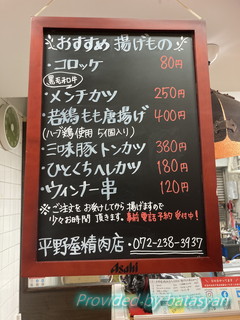 おすすめ 揚げもの
・コロッケ 80円
黒毛和牛
・メンチカツ 250円
・若鶏もも唐揚げ 400円
(ハーブ鶏使用 5個入り)
・三味豚トンカツ 380円
・ひとくちヘレカツ 180円
・ウィンナー串 120円
※ご注文をお受けしてから揚げますので
少々お時間頂きます。事前電話予約受付中!
平野屋精肉店・072-238-3937
Asahi
Provided by batasyan